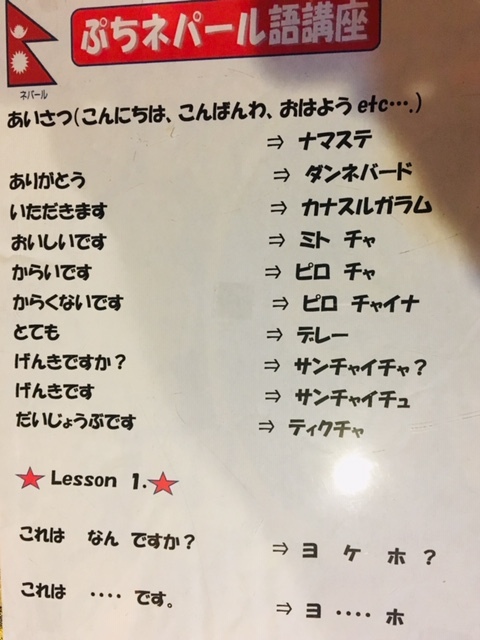 ぷちネパール語講座
ネパール
あいさつ(こんにちは、こんばんわ、おはようetc….)
⇒ ナマステ
ありがとう ⇒ ダンネバード
いただきます ⇒ カナスルガラム
おいしいです ⇒ ミト チャ
からいです ⇒ ピロ チャ
からくないです ⇒ ピロ チャイナ
とても ⇒ デレー
げんきですか? ⇒ サンチャイチャ?
げんきです ⇒ サンチャイチュ
だいじょうぶです ⇒ ティクチャ
★ Lesson 1.★
これは なん ですか? ⇒ ヨ ケ ホ ?
これは ‥‥ です。 ⇒ ヨ ‥‥ ホ